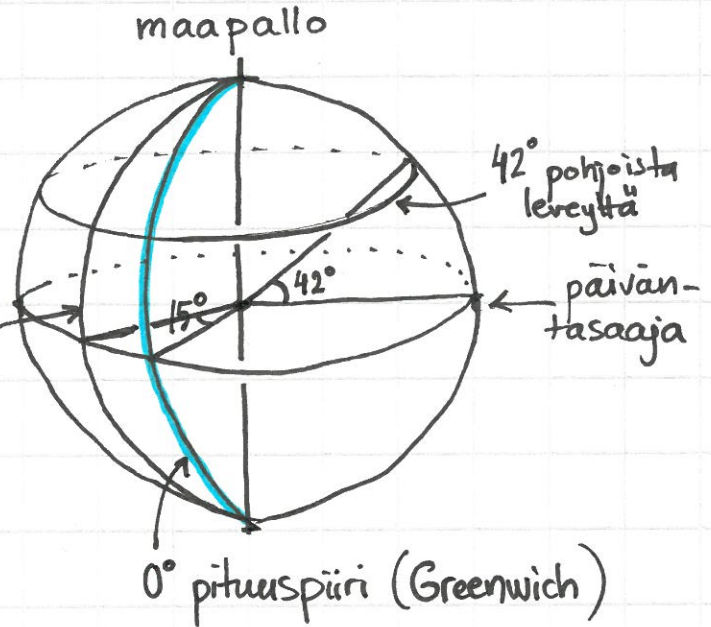 maapallo
42° pohjoista
leveyttä
15°
42°
päivän-
tasaaja
0° pituuspiiri (Greenwich)